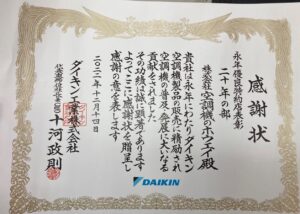 感謝状
永年優良特約店表彰
二十年の部
株式会社空調機のホクエイ殿
貴社は永年にわたりダイキン
空調機製品の販売に精励され
空調機の普及発展に大いなる
貢献をされました
その功績は誠に顕著であります
よってここに感謝状を贈呈し
感謝の意を表します
二〇二一年十二月十四日
ダイキン工業株式会社
代表取締役社長兼CEO 十河政則
DAIKIN